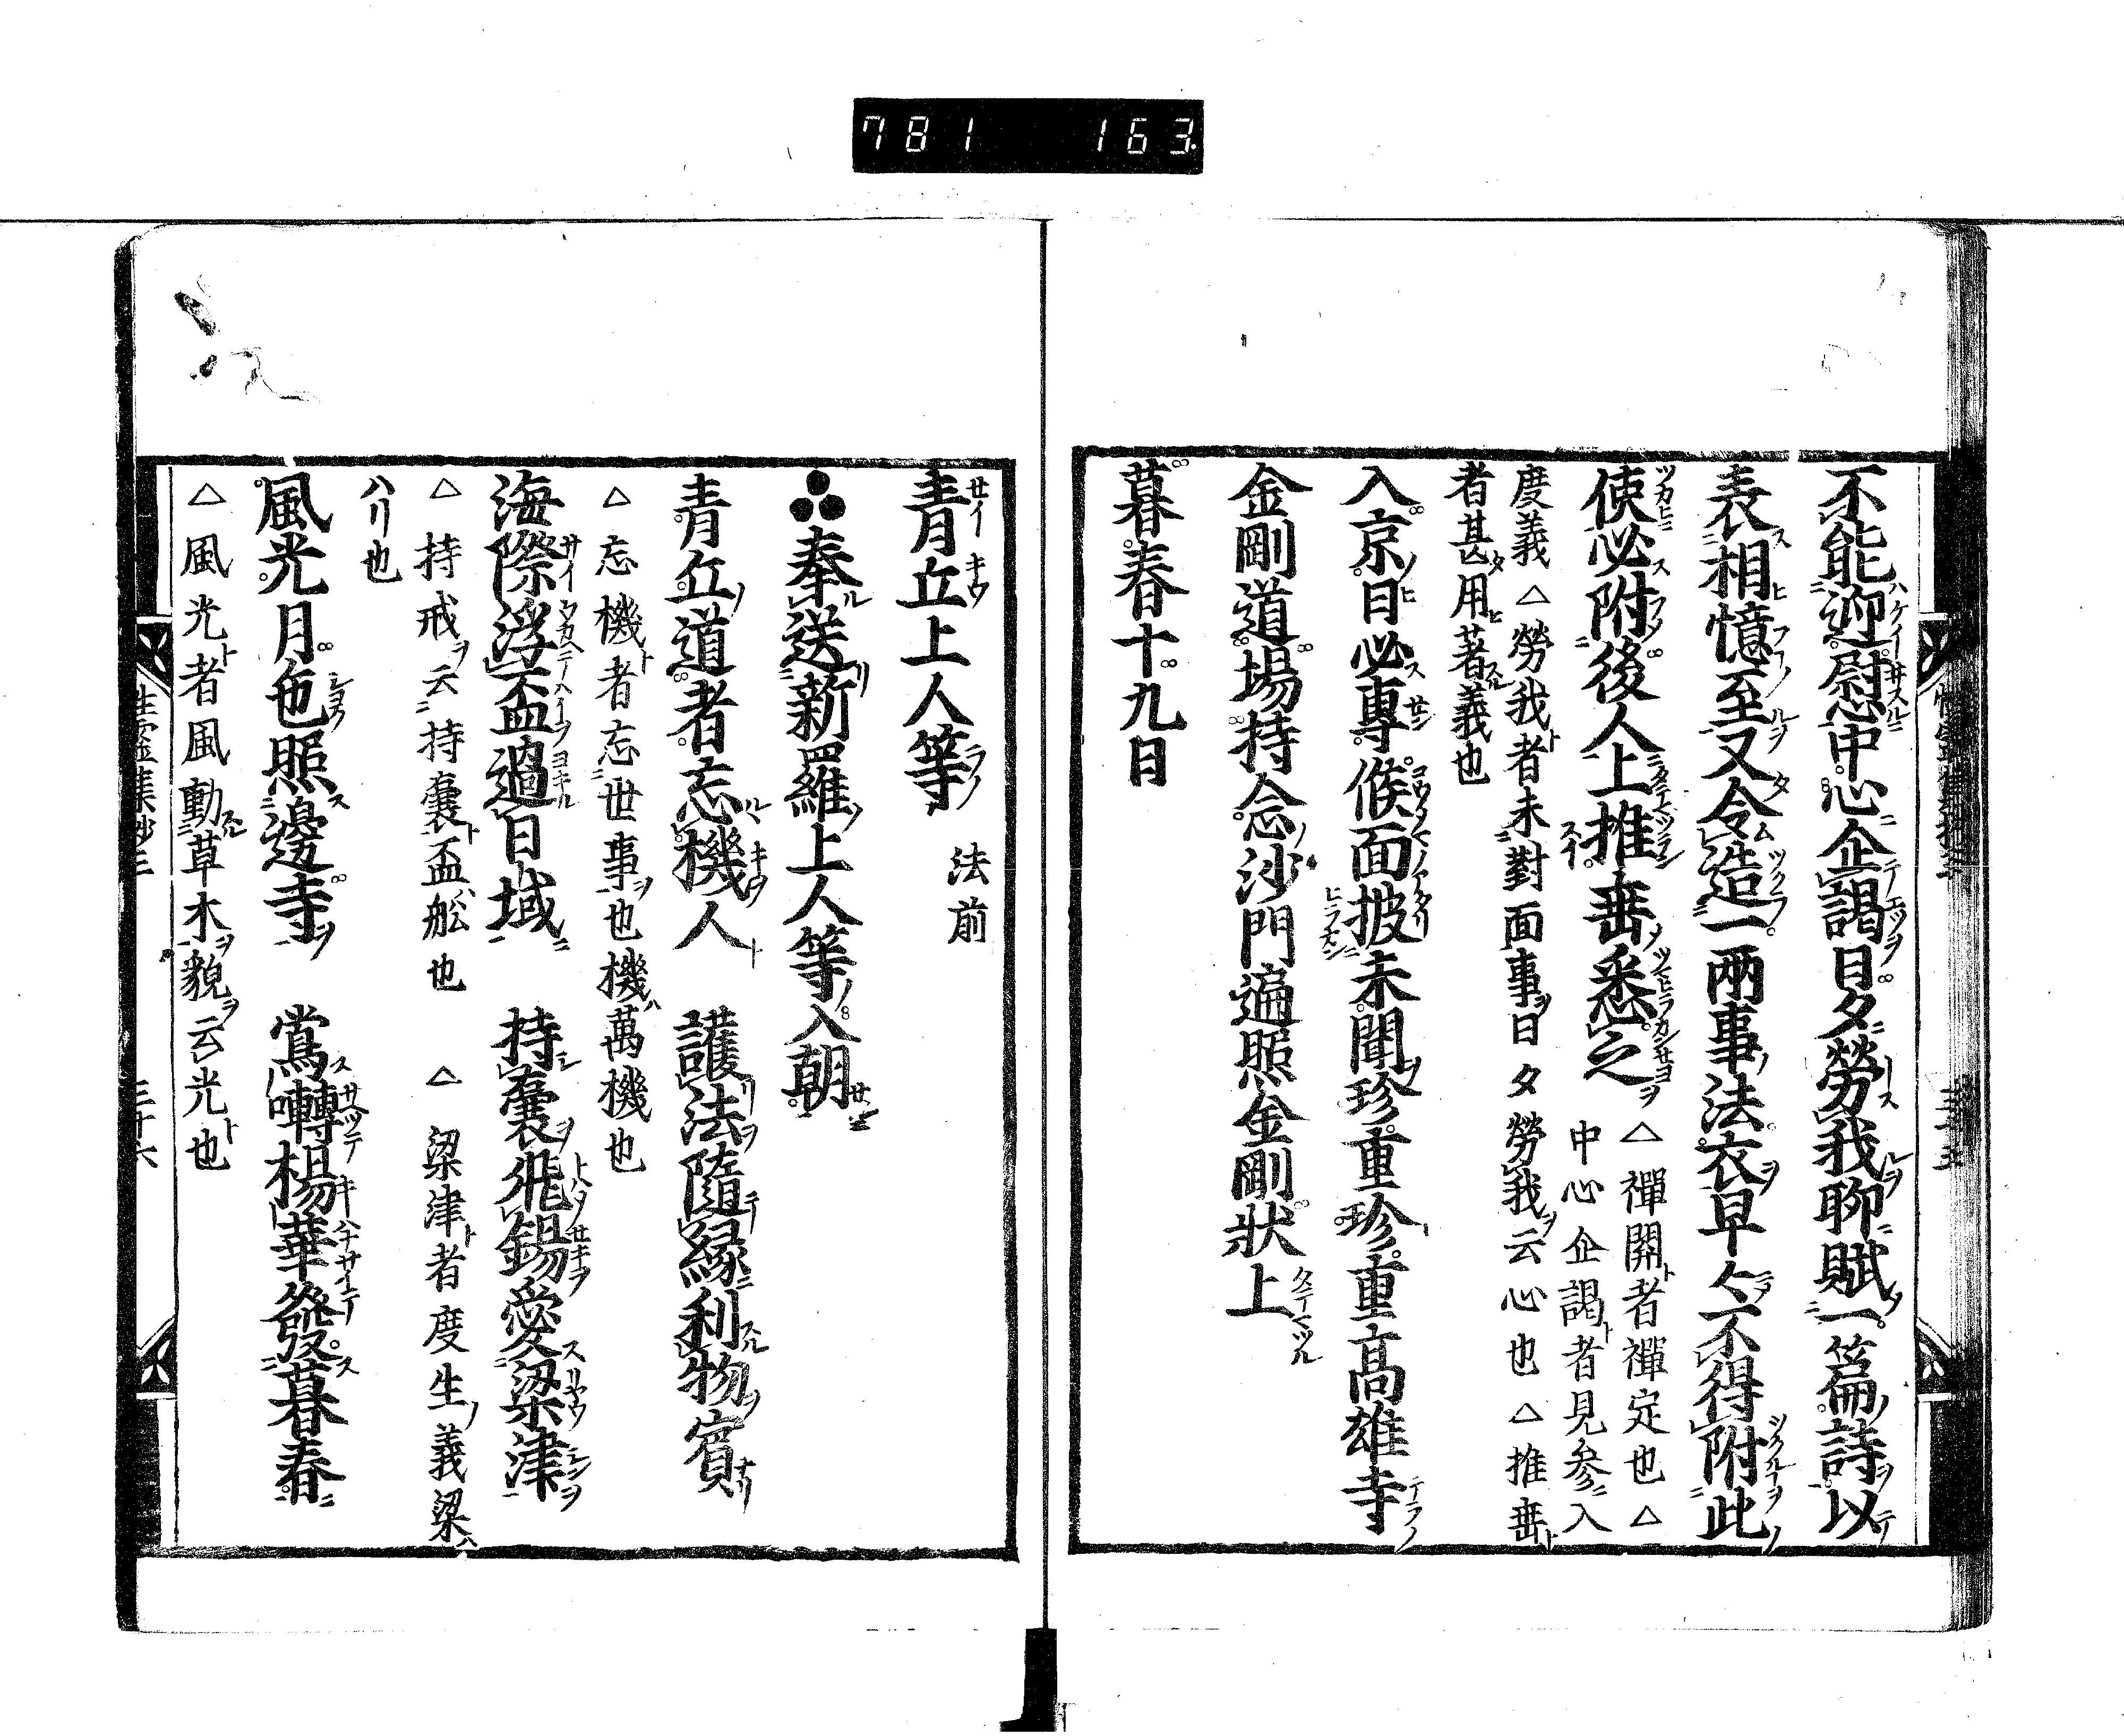 781 163
不能迎慰中心企謁日夕勞我聊賦一篇詩以
表相憶至又令造一兩事法衣早今不得附此
使必附後人上推垂悉之
△禪關者禪定也△
中心企謁者見參入
度義△勞我者未對面事日夕勞我云心也△推垂
者甚用著義也
入京日必專候面披未聞珍重珍重高雄寺
金剛道場持念沙門遍照金剛狀上
暮春十九日
青丘上人等 法前
奉送新羅上人等入朝
青丘道者忘機人 護法隨緣利物賓
△忘機者忘世事也機萬機也
海際浮盃過日域 持囊飛錫愛梁津
△持戒云持囊盃舩也 △梁津者度生義梁
ハ刂也
風光月色照邊寺 鶯囀楊華發暮春
△風光者風動草木貌云光也
性靈集抄三 三十六